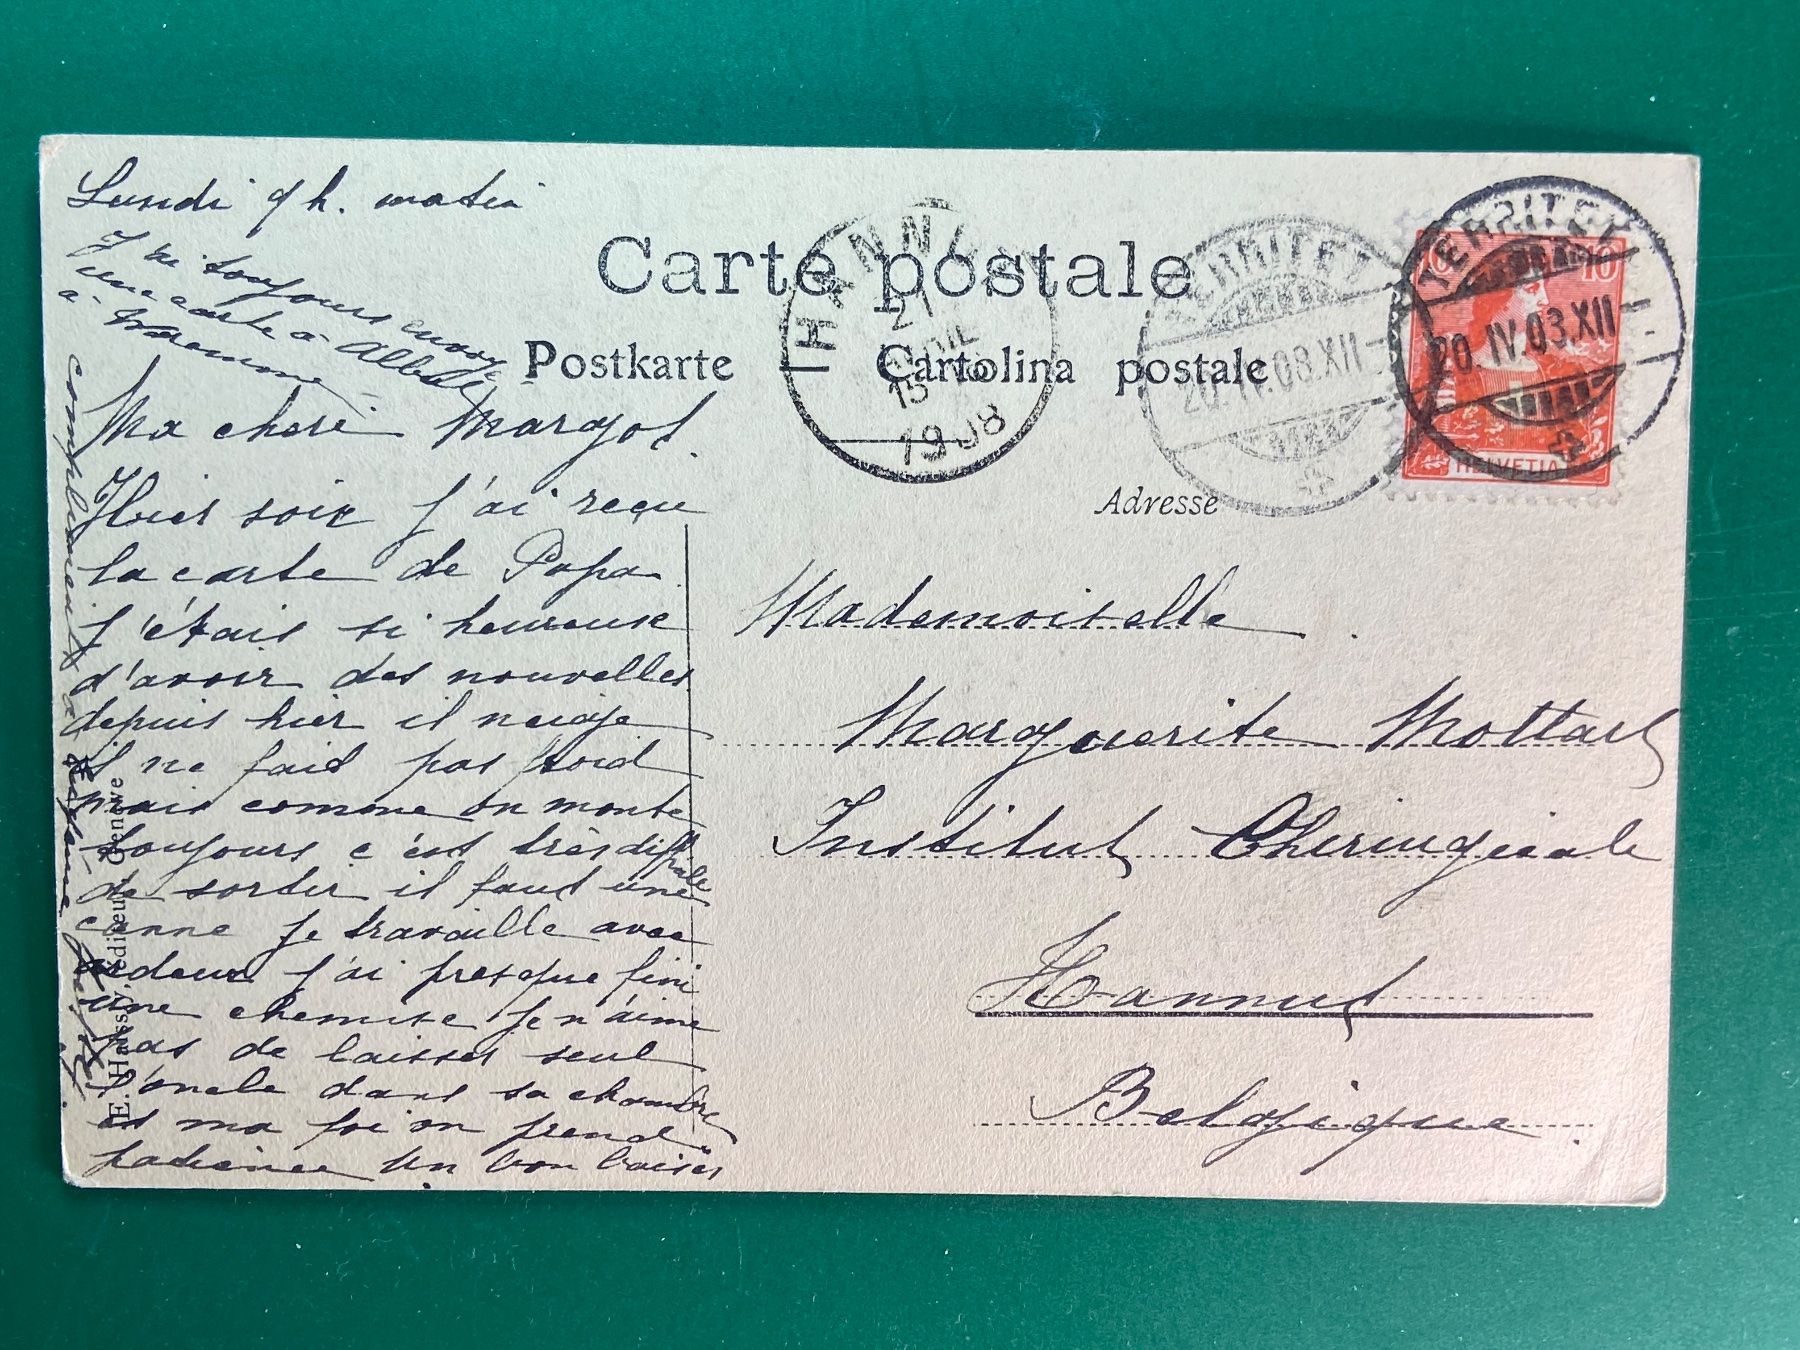 Lundi 9 h. matin
J'ai toujours envoyé
une carte à Albert
à
Carte postale
Postkarte Cartolina postale
HANNUT
21
15
1908
TERRITET
20.IV.08.XII
TERRITET
20.IV.08.XII
10 10
HELVETIA
Adresse
Ma cheri Margot
Hier soir j'ai reçu
la carte de Papa
j'étais si heureuse
d'avoir des nouvelles
depuis hier il neige
il ne fait pas froid
mais comme on monte
toujours c'est très difficile
de sortir il faut une
canne Je travaille avec
ardeur j'ai presque fini
une chemise Je n'aime
pas de laisser seul
l'oncle dans sa chambre
et ma foi on prend
patience Un bon baiser
compliments à
E. Haissly, éditeur, Genève
Mademoiselle
Marguerite Mottart
Institut Chirurgicale
Hannut
Belgique.